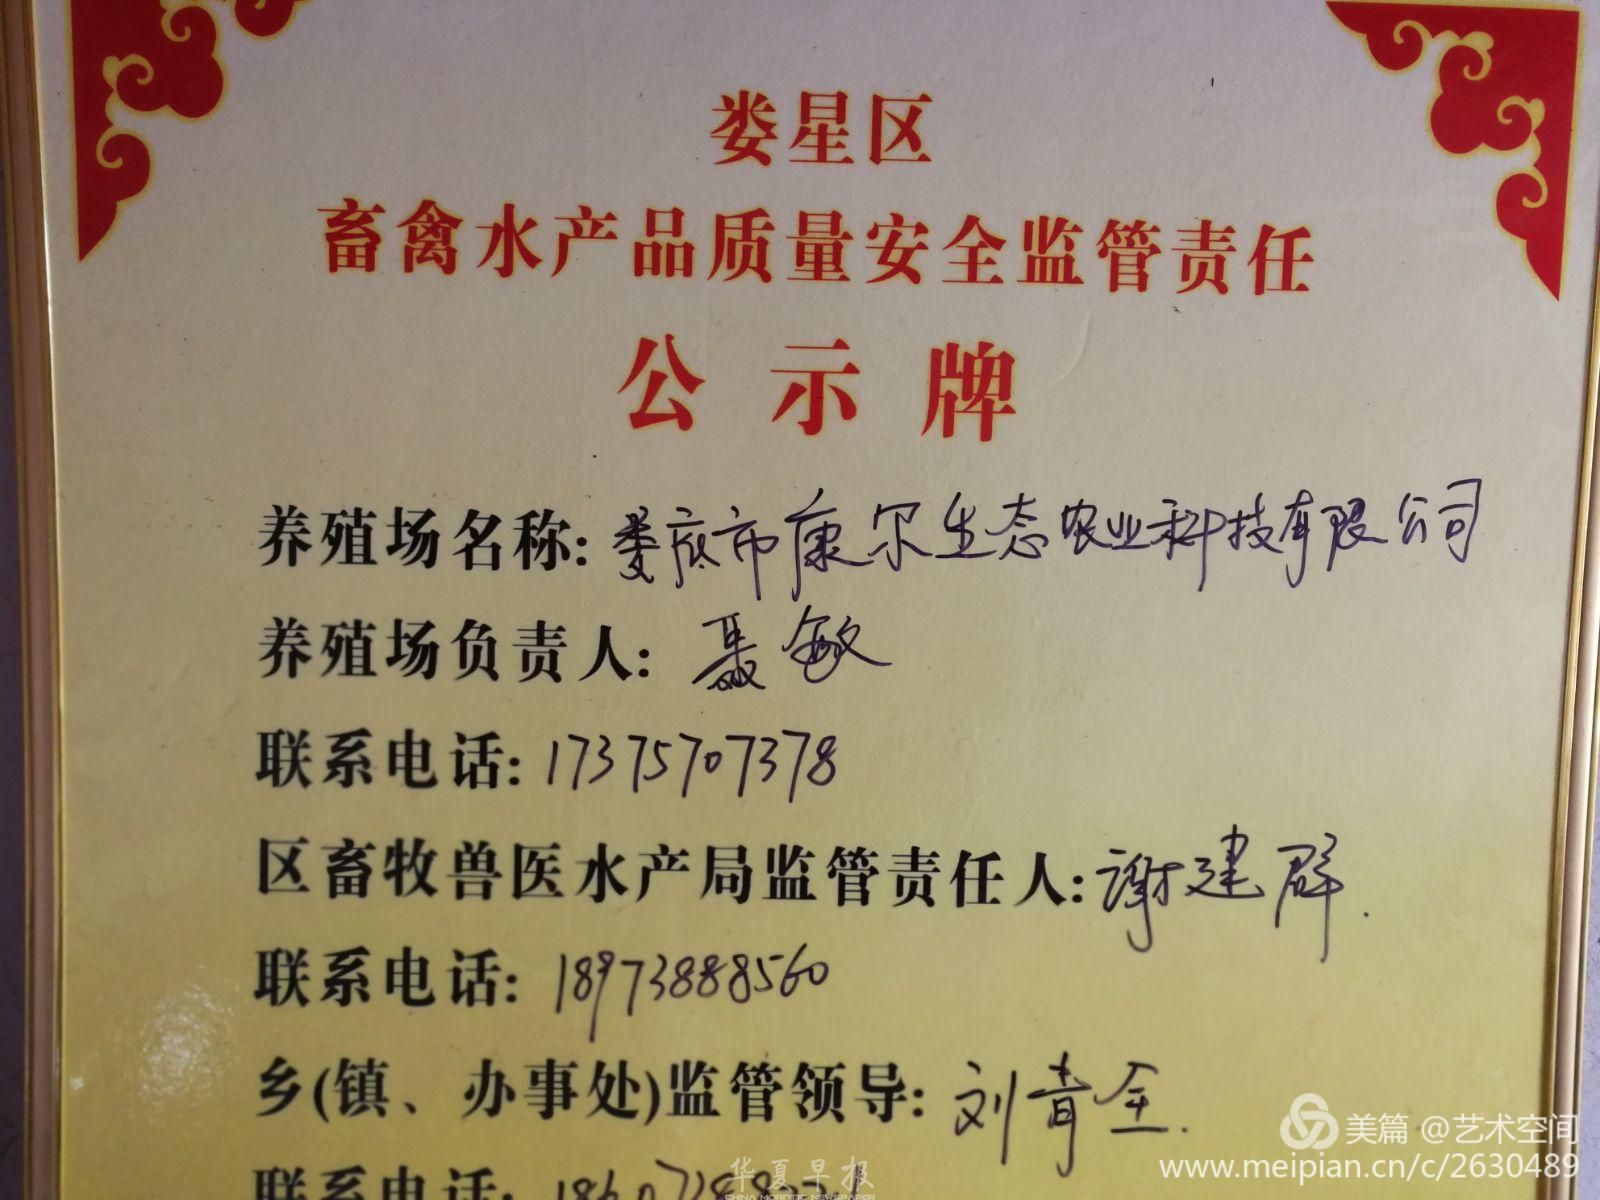 娄星区
畜禽水产品质量安全监管责任
公示牌
养殖场名称: 娄底市康尔生态农业科技有限公司
养殖场负责人: 聂敏
联系电话: 17375707378
区畜牧兽医水产局监管责任人: 谢建群.
联系电话: 18973888560
乡(镇、办事处)监管领导: 刘青全.
联系电话:
华夏早报
CHINA MORNING NEWSPAPER
美篇 @艺术空间
www.meipian.cn/c/2630489